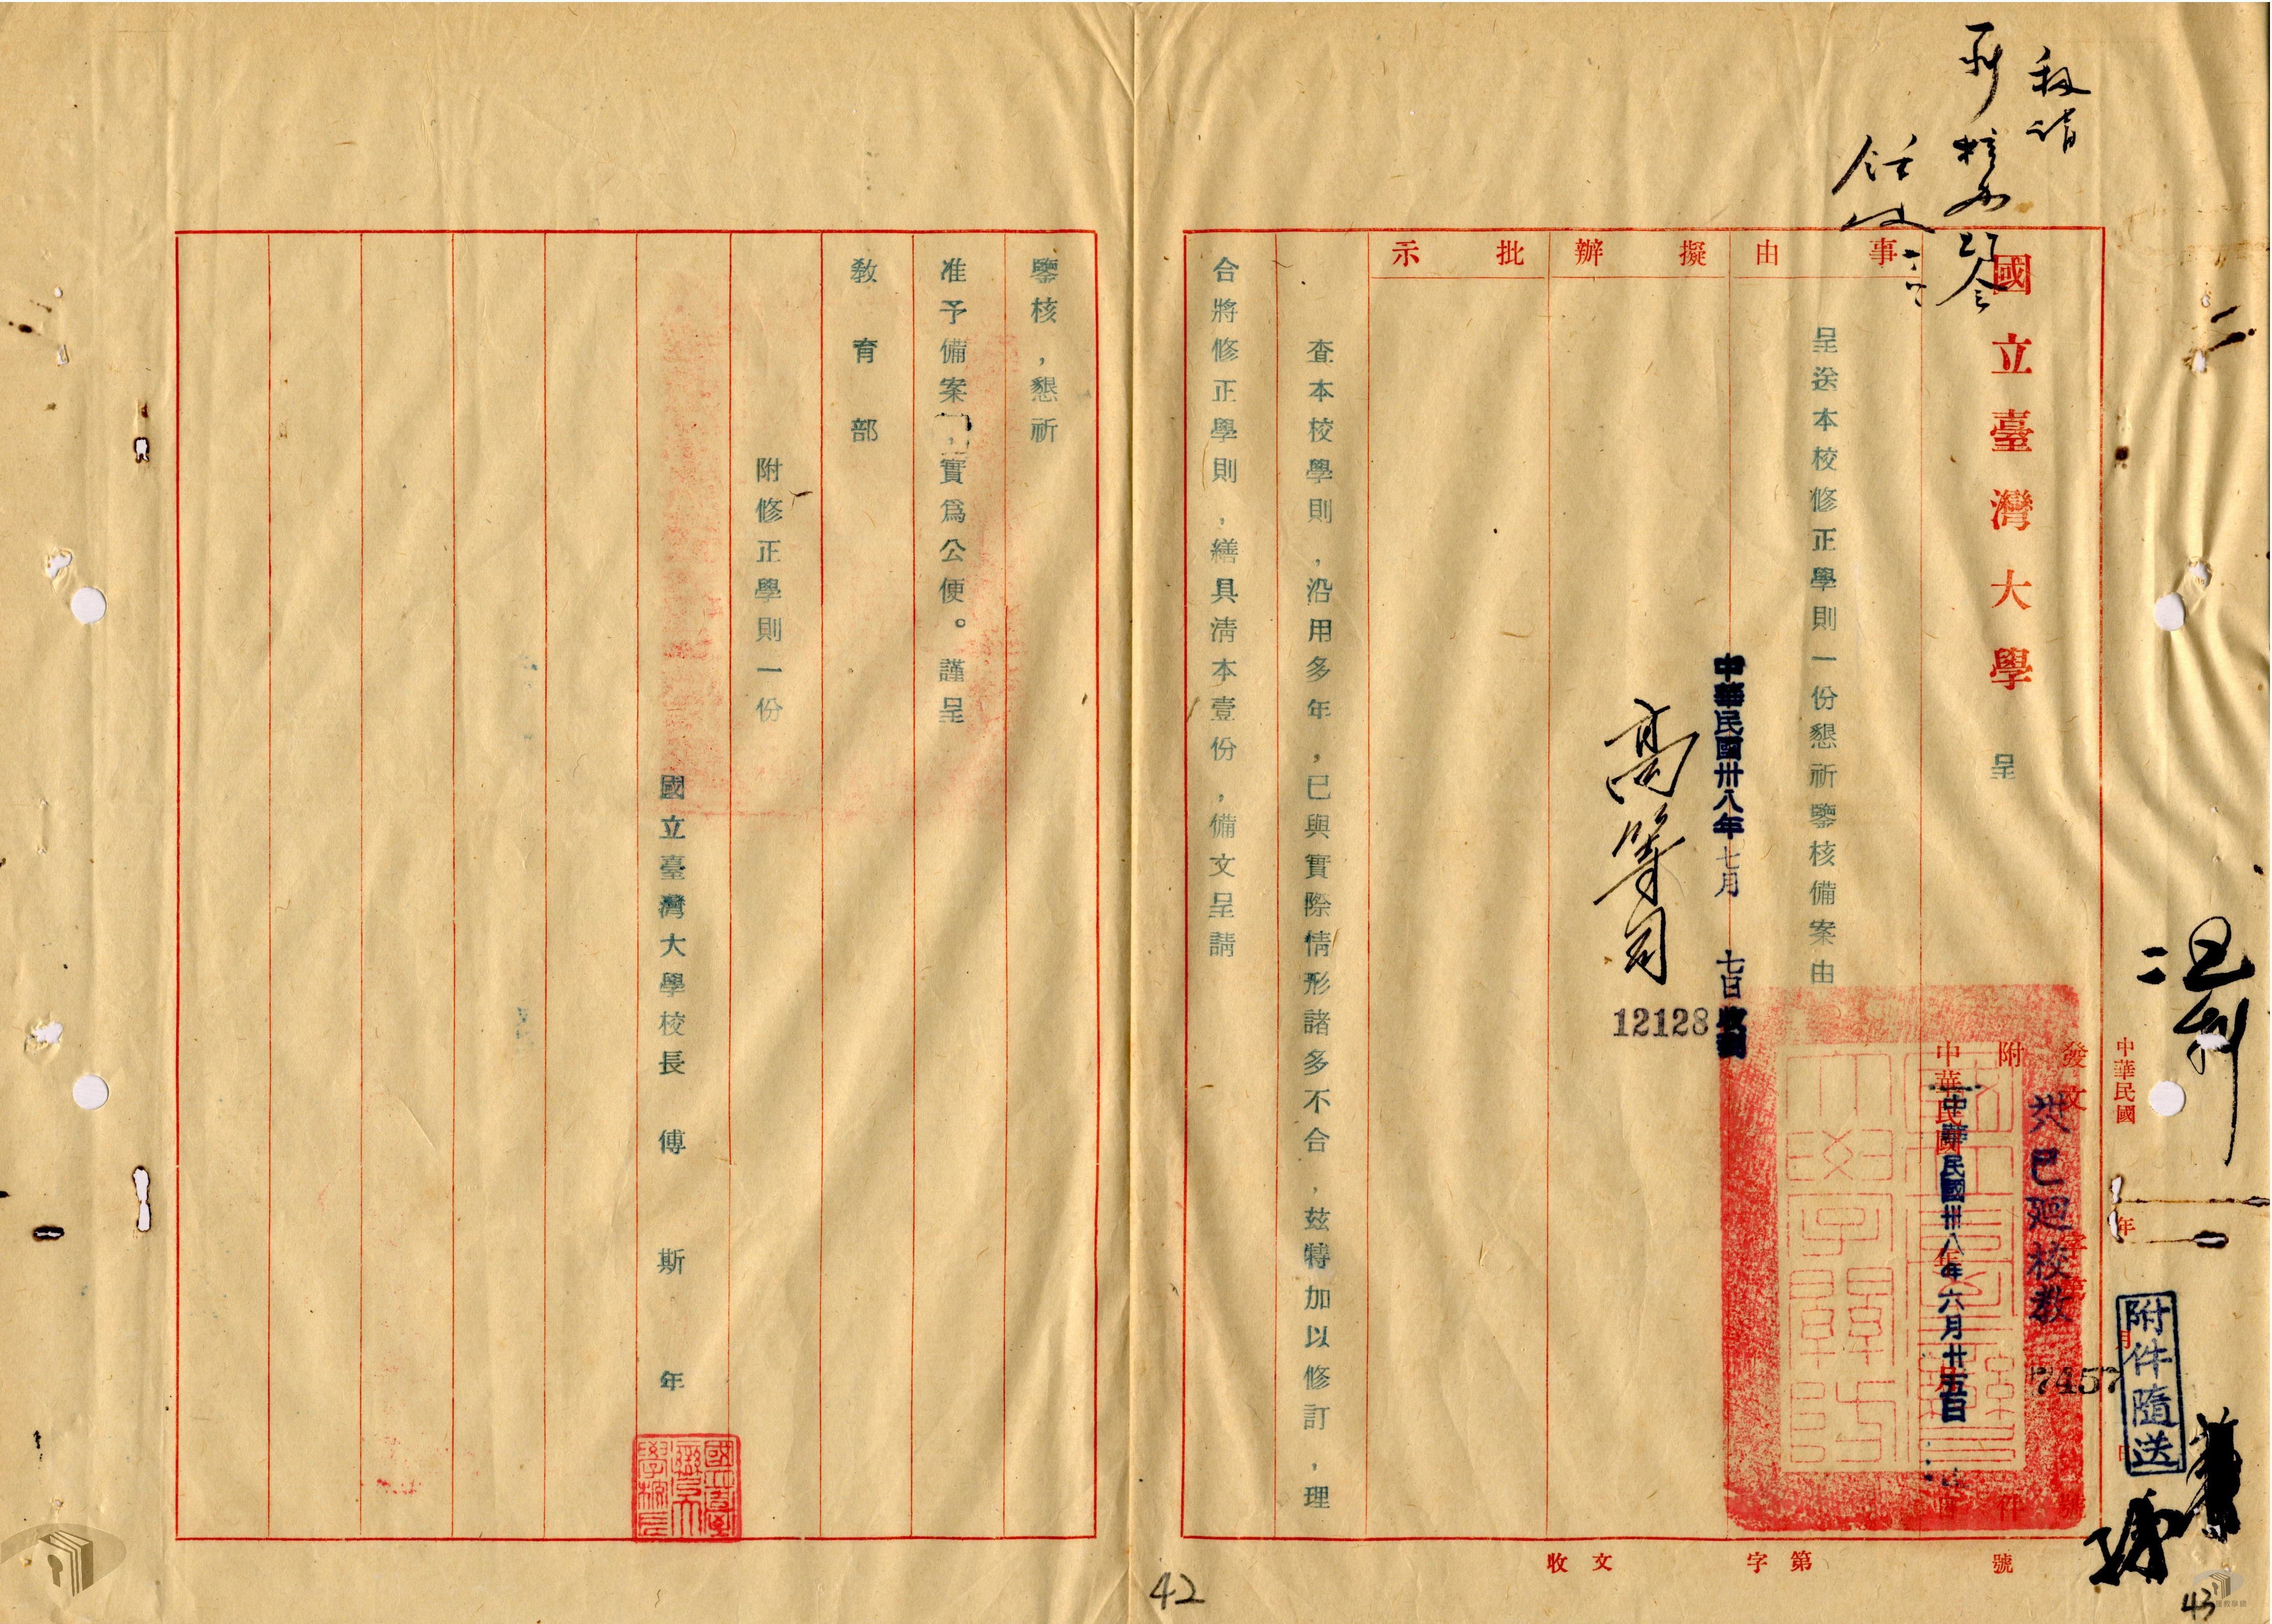 國立臺灣大學 呈
事由
擬辦
批示
呈送本校修正學則一份懇祈鑒核備案由
中華民國卅八年七月七日收到
高等司
12128
發文 字第 號
附件
卅八巳廻校教
7457
中華民國 年
中華民國卅八年六月廿五日
附件隨送
查本校學則,沿用多年,已與實際情形諸多不合,茲特加以修訂,理
合將修正學則,繕具清本壹份,備文呈請
鑒核,懇祈
准予備案,實爲公便。謹呈
教育部
附修正學則一份
國立臺灣大學校長 傅斯年
收文 字第 號
42
43